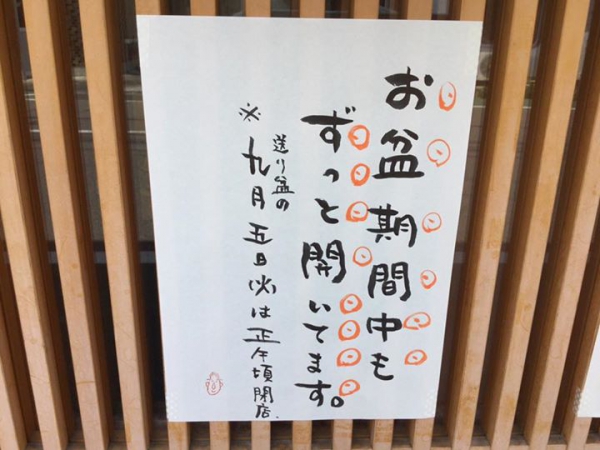 お盆期間中も
ずっと開いてます。
※送り盆の九月五日(火)は正午頃閉店.